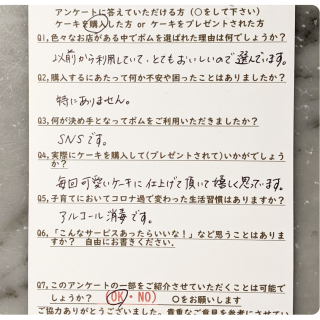 アンケートに答えていただける方（○をして下さい）
ケーキを購入した方 or ケーキをプレゼントされた方
Q1,色々なお店がある中でボムを選ばれた理由は何でしょうか？
以前から利用していて、とてもおいしいので選んでいます。
Q2,購入するにあたって何か不安や困ったことはありましたか？
特にありません。
Q3,何が決め手となってボムをご利用いただきましたか？
SNSです。
Q4,実際にケーキを購入して(プレゼントされて)いかがでしょうか？
毎回可愛いケーキに仕上げて頂いて嬉しく思っています。
Q5,子育てにおいてコロナ過で変わった生活習慣はありますか？
アルコール消毒です。
Q6,「こんなサービスあったらいいな！」など思うことはありますか？ 自由にお書きください.
Q7,このアンケートの一部をご紹介させていただくことは可能でしょうか？ （OK・NO） ○をお願いします
ご協力ありがとうございました。貴重なご意見を参考にさせてい